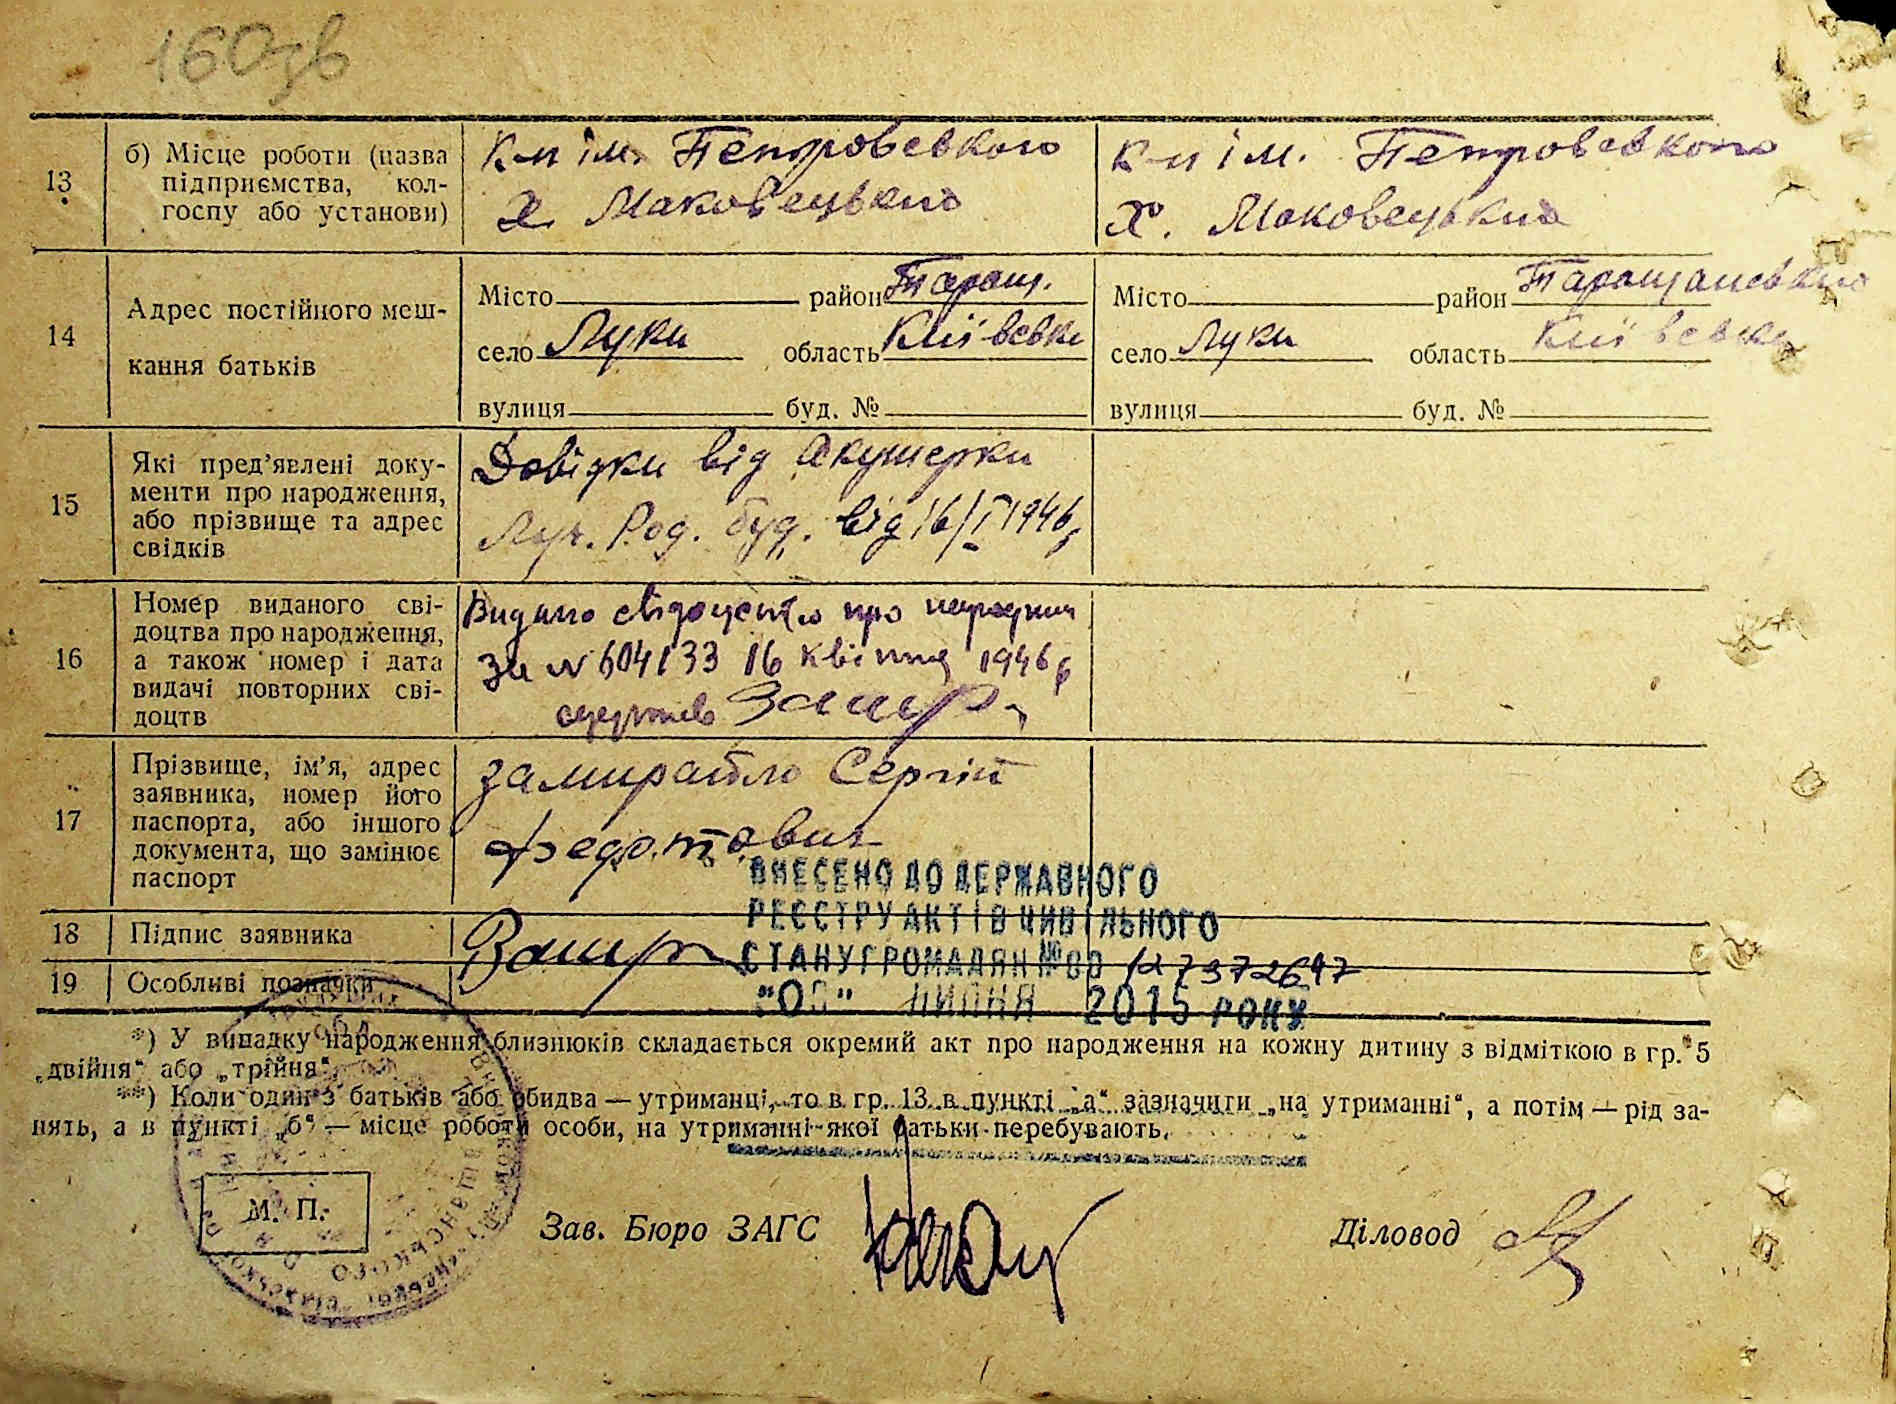 160зв
13 б) Місце роботи (назва підприємства, колгоспу або установи)
К-п ім. Петровського
х. Маковецького
К-п ім. Петровського
х. Маковецького
14 Адрес постійного мешкання батьків
Місто район Таращ.
село Луки область Київськ
вулиця буд. №
Місто район Таращанського
село Луки область Київськ
вулиця буд. №
15 Які пред'явлені документи про народження, або прізвище та адрес свідків
Довідки від Акушерки
Луч. Род. буд. від 16/I 1946
16 Номер виданого свідоцтва про народження, а також номер і дата видачі повторних свідоцтв
Видано свідоцтво про народжен
за № 604133 16 квітня 1946 р
одержав Замир
17 Прізвище, ім'я, адрес заявника, номер його паспорта, або іншого документа, що замінює паспорт
Замирайло Сергій
Федотович
ВНЕСЕНО ДО ДЕРЖАВНОГО
РЕЄСТРУ АКТІВ ЦИВІЛЬНОГО
18 Підпис заявника Замир
СТАНУ ГРОМАДЯН №00
19 Особливі позначки
ЛИПНЯ 2015 РОКУ
*) У випадку народження близнюків складається окремий акт про народження на кожну дитину з відміткою в гр. 5
„двійня“ або „трійня“.
**) Коли один з батьків або обидва — утриманці, то в гр. 13 в пункті „а“ зазначити „на утриманні“, а потім — рід за-
нять, а в пункті „б“ — місце роботи особи, на утриманні якої батьки перебувають.
М. П.
Зав. Бюро ЗАГС
Діловод